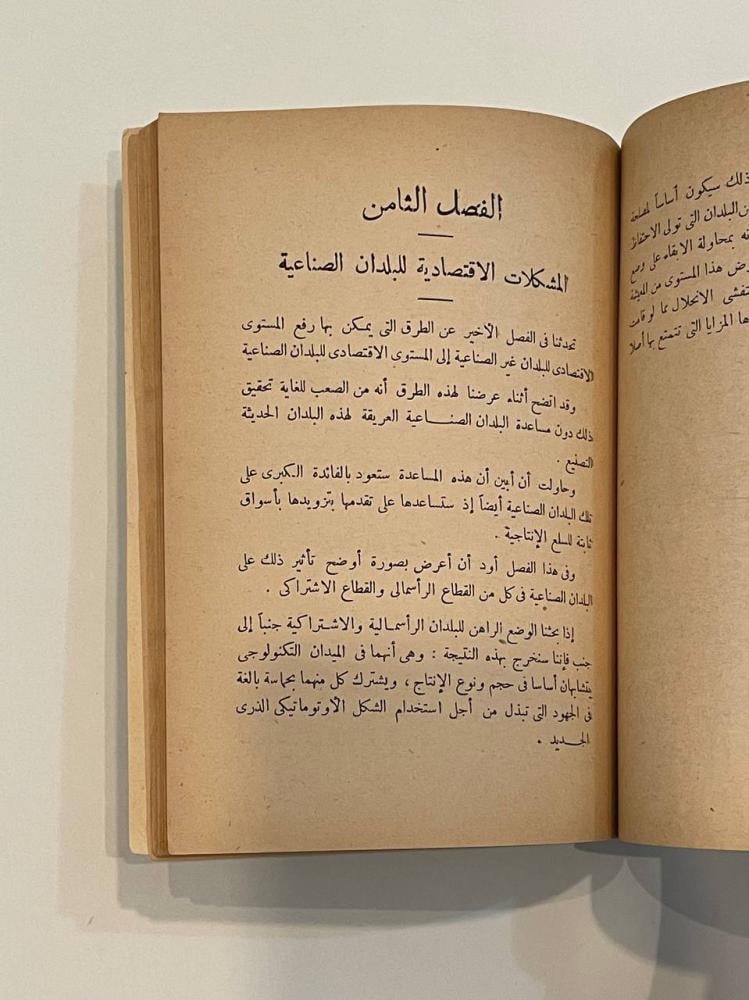 ذلك سيكون أساساً لمصلحة
البلدان التى تولى الاحتفاظ
بمحاولة الابقاء على وضع
هذا المستوى من المعيشة
الانحلال مما لو قامت
المزايا التى تتمتع بها أصلا
الفصل الثامن
المشكلات الاقتصادية للبلدان الصناعية
تحدثنا فى الفصل الأخير عن الطرق التى يمكن بها رفع المستوى
الاقتصادى للبلدان غير الصناعية إلى المستوى الاقتصادى للبلدان الصناعية
وقد اتضح أثناء عرضنا لهذه الطرق أنه من الصعب للغاية تحقيق
ذلك دون مساعدة البلدان الصناعية العريقة لهذه البلدان الحديثة
التصنيع .
وحاولت أن أبين أن هذه المساعدة ستعود بالفائدة الكبرى على
تلك البلدان الصناعية أيضاً إذ ستساعدها على تقدمها بتزويدها بأسواق
ثابتة للسلع الإنتاجية .
وفى هذا الفصل أود أن أعرض بصورة أوضح تأثير ذلك على
البلدان الصناعية فى كل من القطاع الرأسمالى والقطاع الاشتراكى .
إذا بحثنا الوضع الراهن للبلدان الرأسمالية والاشتراكية جنباً إلى
جنب فإننا سنخرج بهذه النتيجة : وهى أنهما فى الميدان التكنولوجى
يتشابهان أساسا فى حجم ونوع الإنتاج ، ويشترك كل منهما بحماسة بالغة
فى الجهود التى تبذل من أجل استخدام الشكل الأوتوماتيكى الذرى
الجديد .